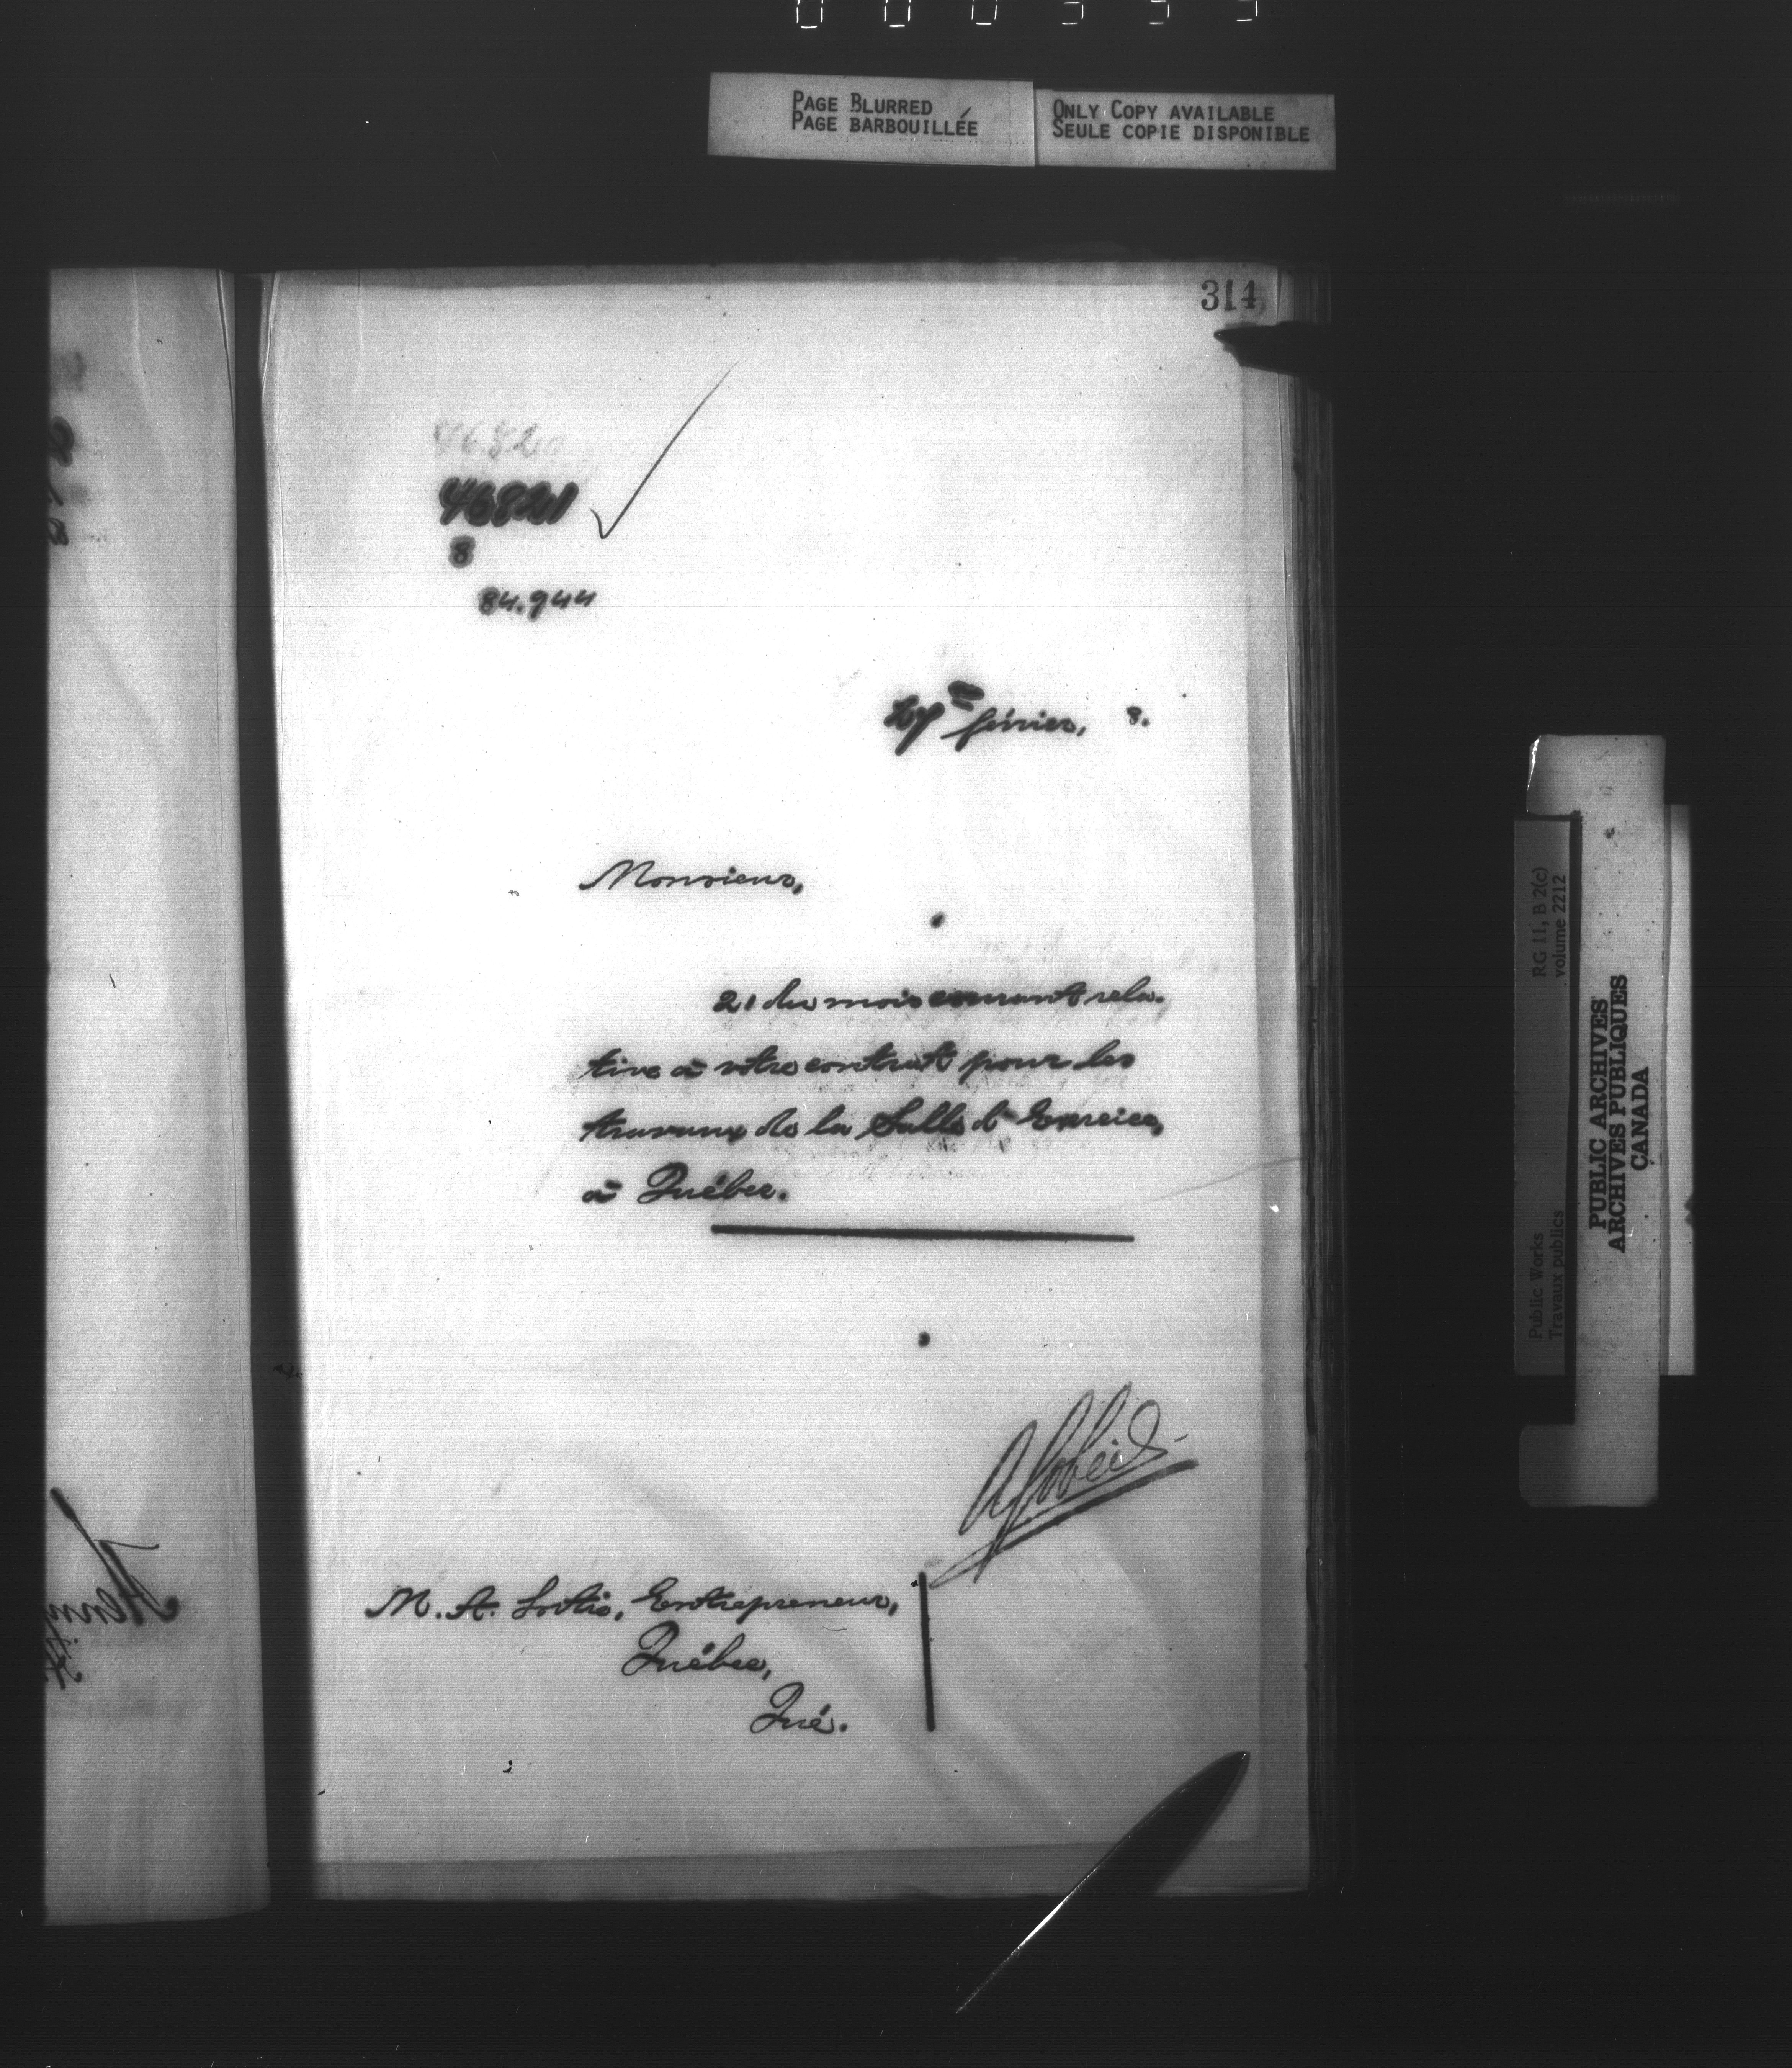 PAGE BLURRED
PAGE BARBOUILLÉE
ONLY COPY AVAILABLE
SEULE COPIE DISPONIBLE
314
46821
8
84.944
27 février, 8.
Monsieur,
21 du mois courant rela-
tive à votre contrat pour les
travaux de la Salle d'Exercice,
à Québec.
M. A. Lortie, Entrepreneur,
Québec,
Qué.
RG 11, B 2(c)
volume 2212
Public Works
Travaux publics
PUBLIC ARCHIVES
ARCHIVES PUBLIQUES
CANADA